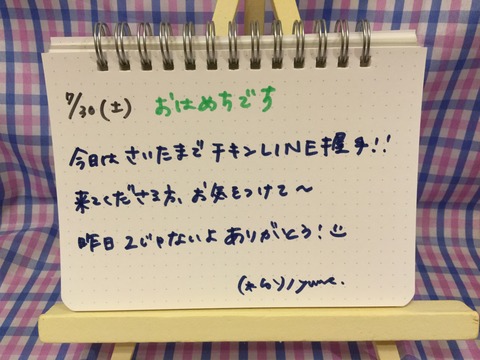 7/30(土) おはめちです
今日は さいたまで チキンLINE握手!!
来てくださる方、お気をつけて〜
昨日2じゃないよ ありがとう!
yume.